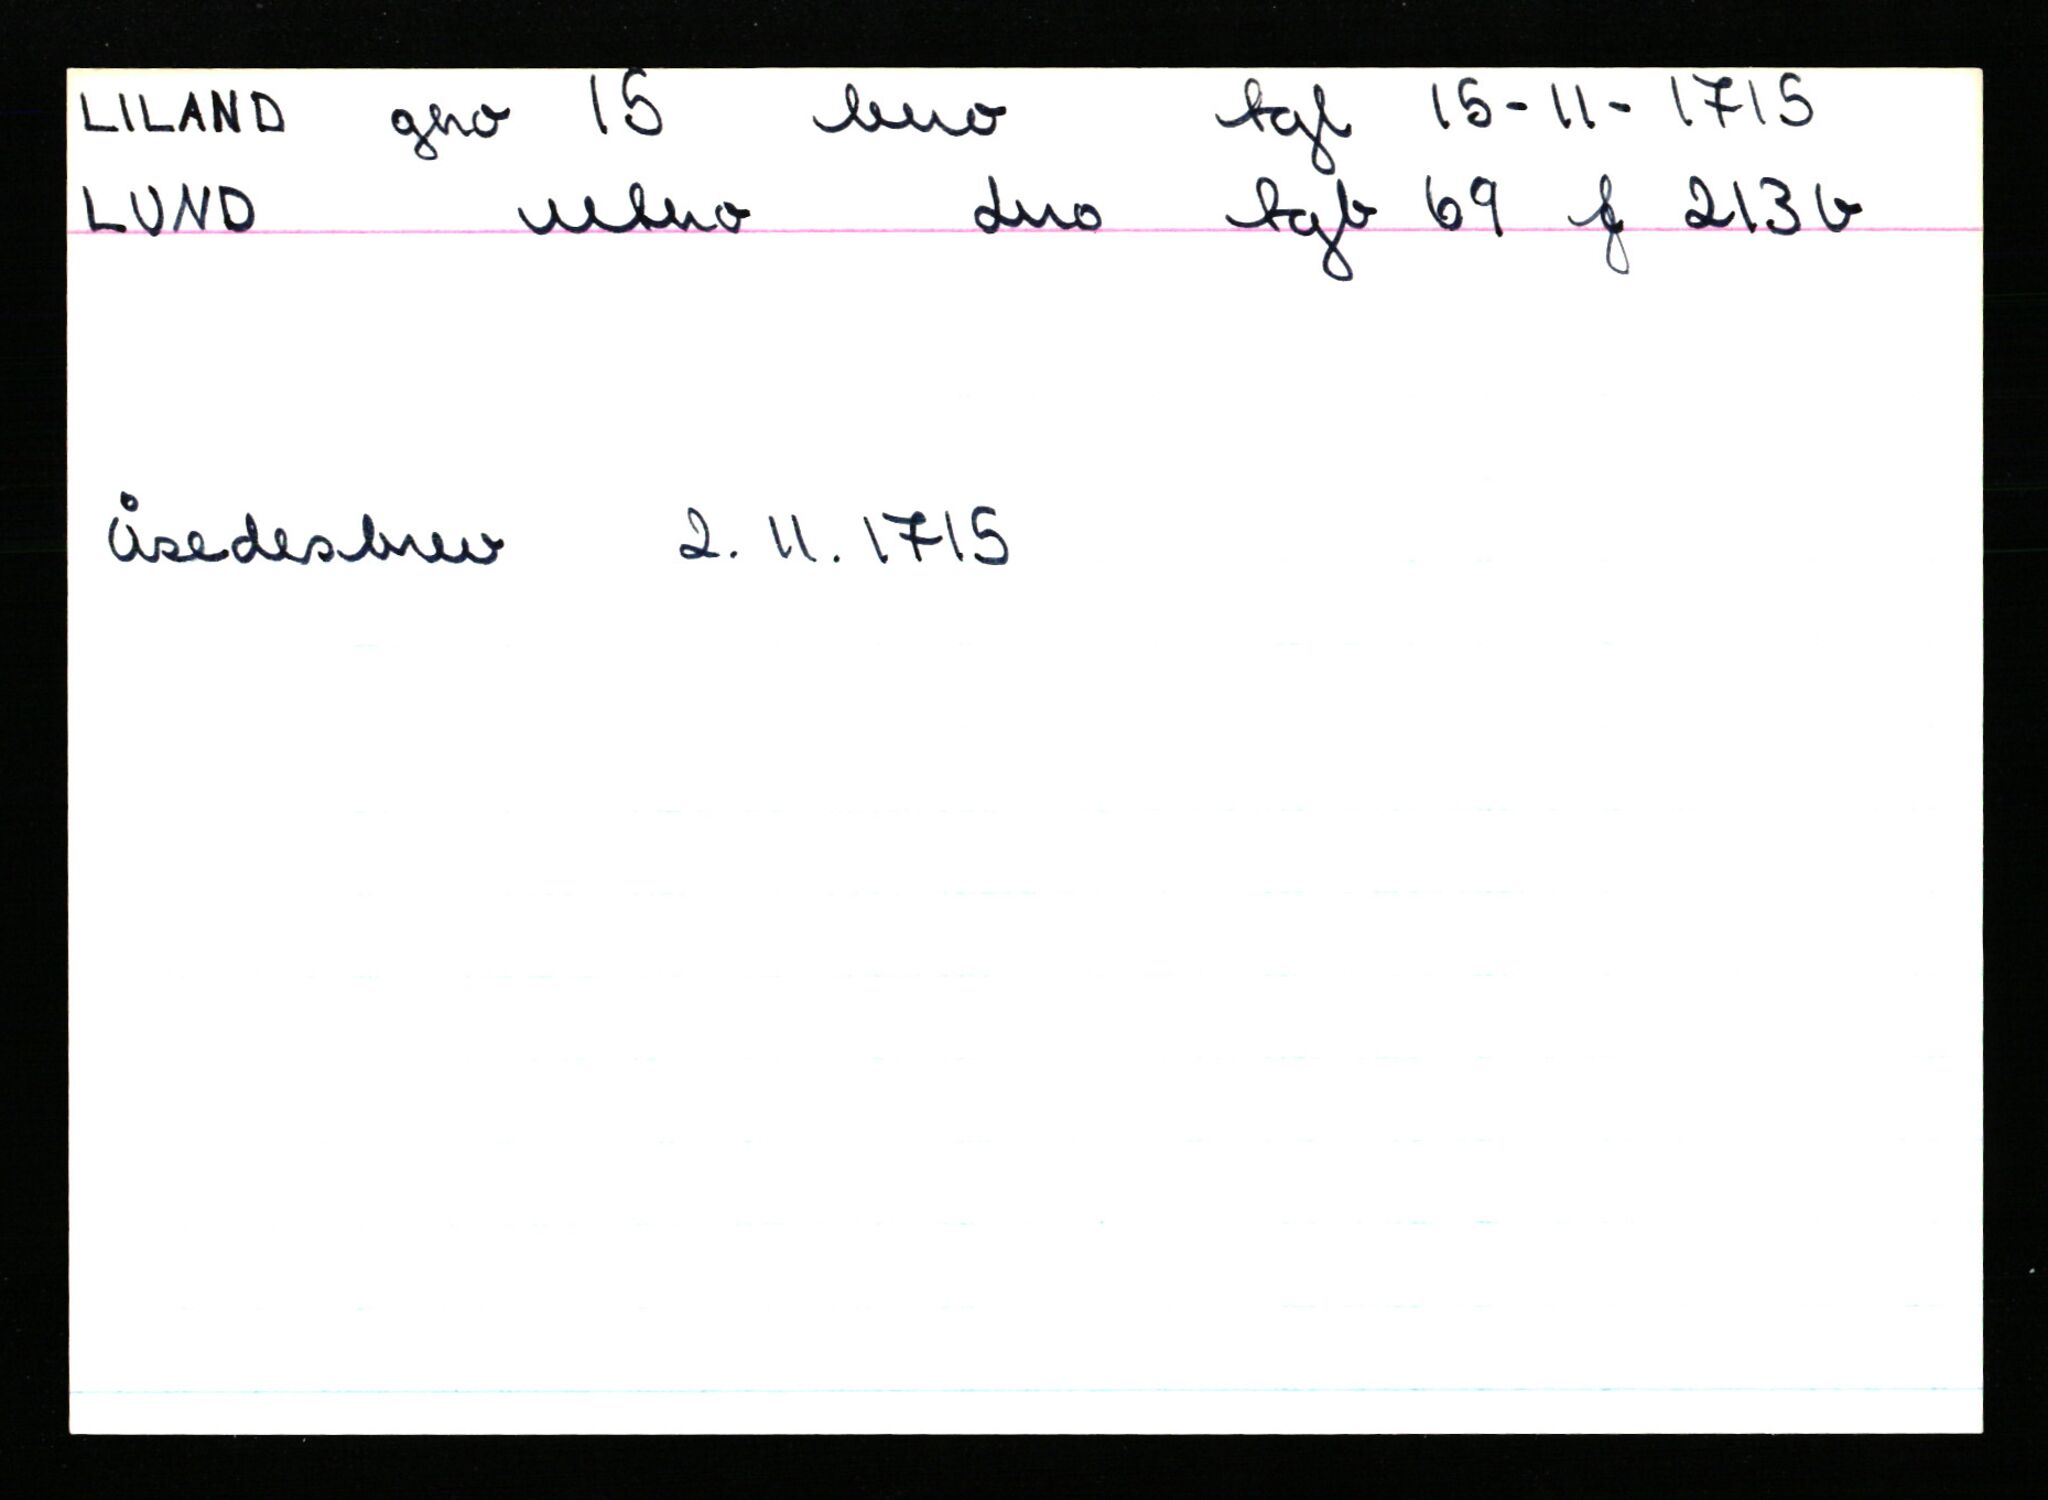 LILAND gno 15 bno tgl 15-11-1715
LUND mbno dno tgb 69 f 213b
Åsedesbrev 2.11.1715